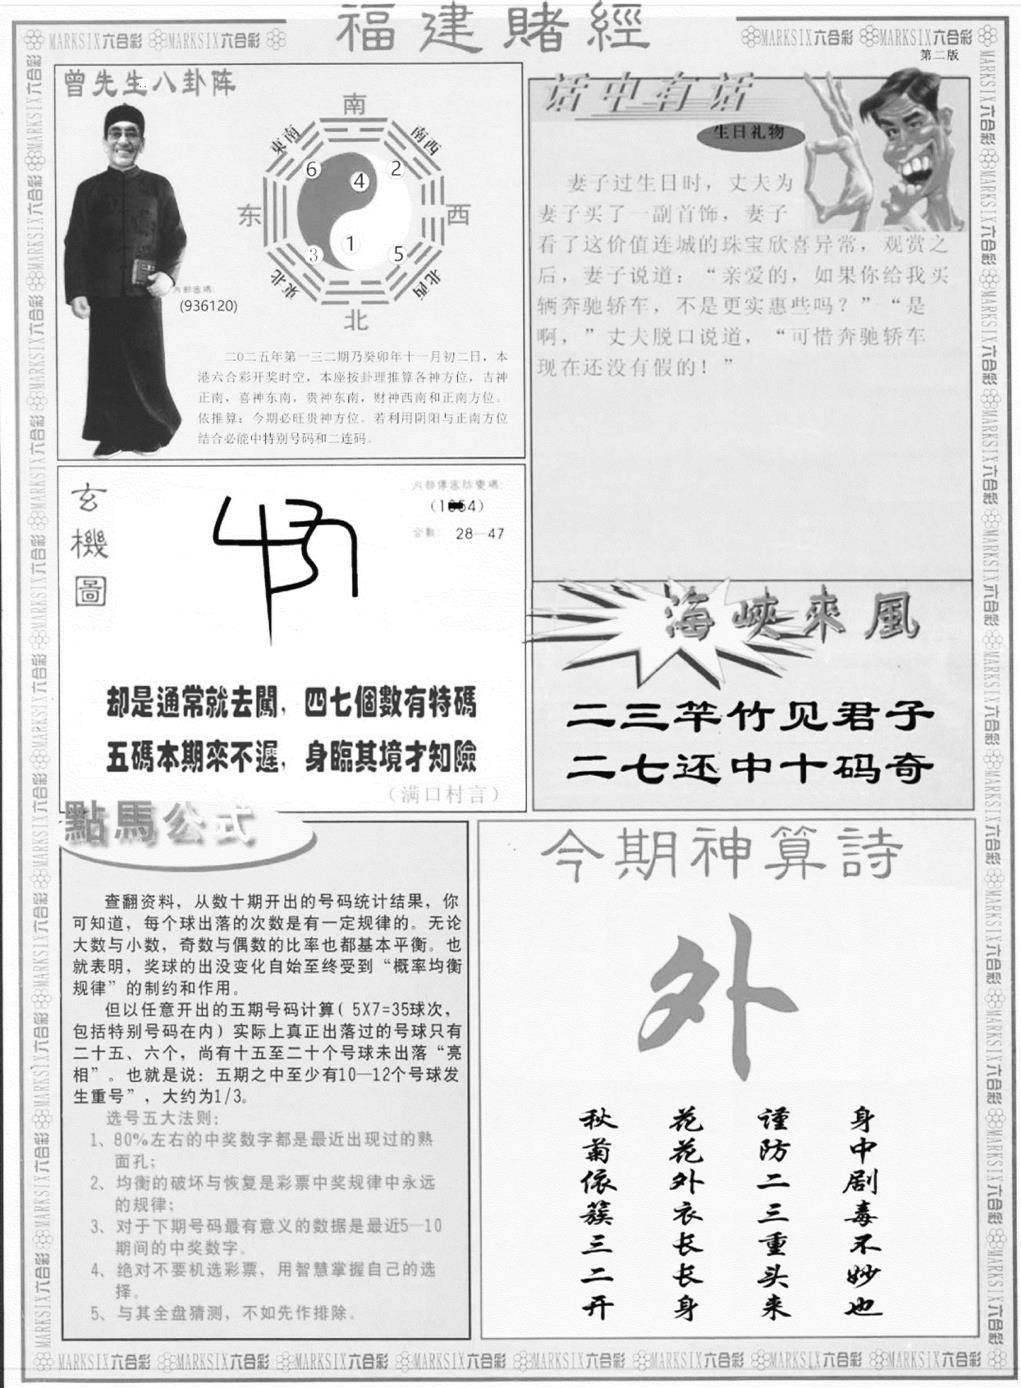 福建賭經
MARKSIX六合彩 MARKSIX六合彩
MARKSIX六合彩 MARKSIX六合彩
第二版
曾先生八卦阵
南
東南
南西
6
4
2
东
西
3
1
5
東北
北西
北
内部密碼:
(936120)
二0二五年第一三二期乃癸卯年十一月初二日，本
港六合彩开奖时空，本座按卦理推算各神方位，吉神
正南，喜神东南，贵神东南，财神西南和正南方位。
依推算：今期必旺贵神方位。若利用阴阳与正南方位
结合必能中特别号码和二连码。
话中有话
生日礼物
妻子过生日时，丈夫为
妻子买了一副首饰，妻子
看了这价值连城的珠宝欣喜异常，观赏之
后，妻子说道：“亲爱的，如果你给我买
辆奔驰轿车，不是更实惠些吗？”“是
啊，”丈夫脱口说道，“可惜奔驰轿车
现在还没有假的！”
玄機圖
28—47
却是通常就去闖，四七個數有特碼
五碼本期來不遲，身臨其境才知險
（满口村言）
海峽來風
二三竿竹见君子
二七还中十码奇
點馬公式
查翻资料，从数十期开出的号码统计结果，你
可知道，每个球出落的次数是有一定规律的。无论
大数与小数，奇数与偶数的比率也都基本平衡。也
就表明，奖球的出没变化自始至终受到“概率均衡
规律”的制约和作用。
但以任意开出的五期号码计算( 5X7=35球次，
包括特别号码在内) 实际上真正出落过的号球只有
二十五、六个，尚有十五至二十个号球未出落“亮
相”。也就是说：五期之中至少有10—12个号球发
生重号”，大约为1/3。
选号五大法则:
1、80%左右的中奖数字都是最近出现过的熟
面孔；
2、均衡的破坏与恢复是彩票中奖规律中永远
的规律；
3、对于下期号码最有意义的数据是最近5—10
期间的中奖数字。
4、绝对不要机选彩票，用智慧掌握自己的选
择。
5、与其全盘猜测，不如先作排除。
今期神算詩
外
秋菊依簇三二开
花花外衣长长身
谨防二三重头来
身中剧毒不妙也
MARKSIX六合彩 MARKSIX六合彩 MARKSIX六合彩 MARKSIX六合彩 MARKSIX六合彩 MARKSIX六合彩 MARKSIX六合彩 MARKSIX六合彩